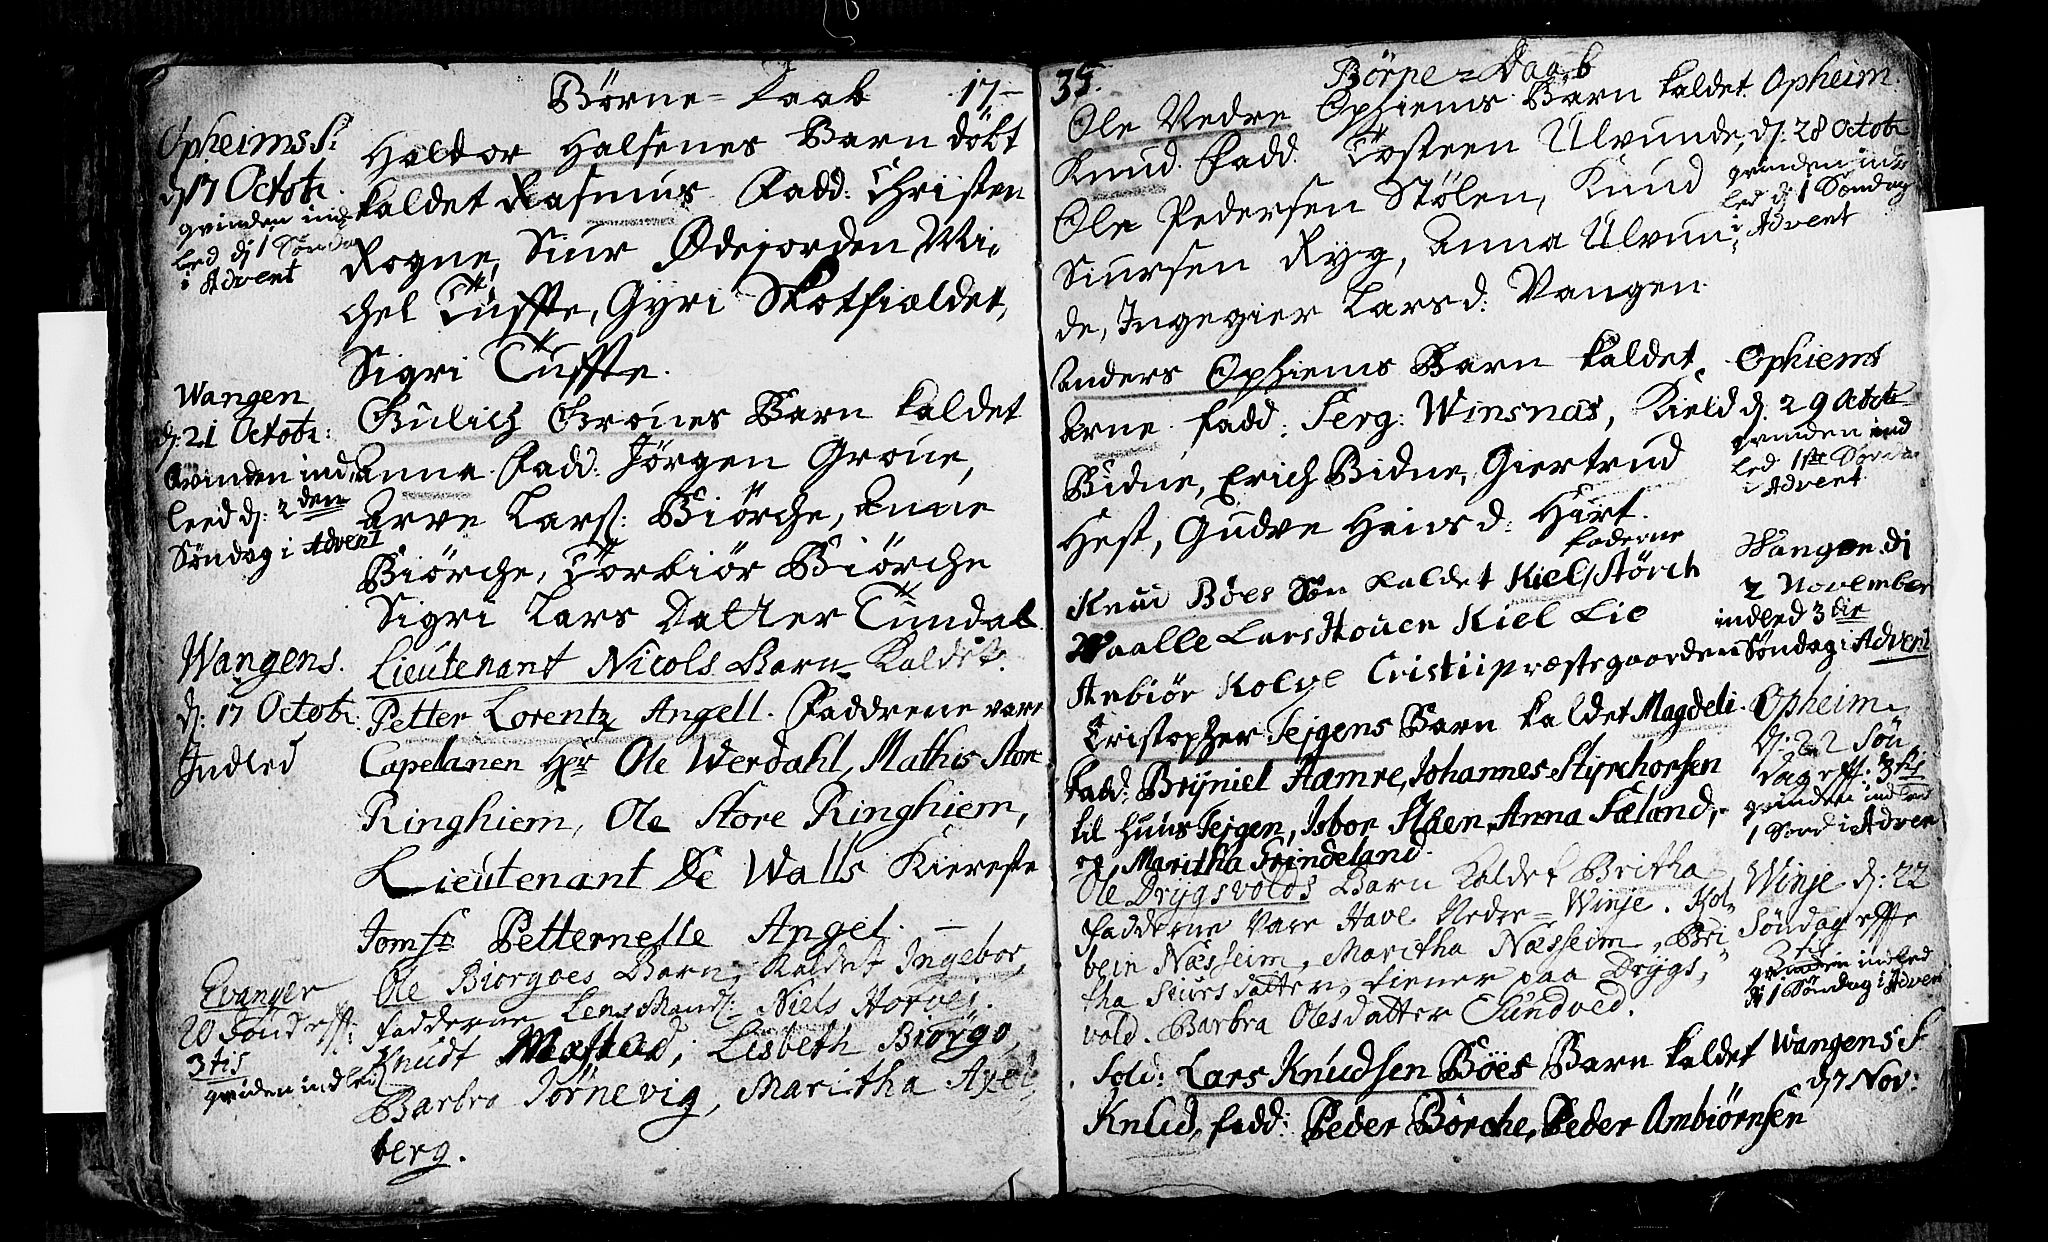 Børne=Daab 17
Opheims S:
d: 17 Octobr.
qvinden ind
led d: 1 Sønda
i Advent
Haldor Halsenes Barn døbt
kaldet Rasmus Fadd: Christen
Rogne, Siur Ødejorden Mi,
chel Tuffte, Gyri Skotsialdet,
Sigri Tuffte.
Wangen
d: 21 Octobr:
Qvinden ind,
leed d: 2den
Søndag i Advent
Gulich Groues Barn kaldet
Anna. Fadd: Jørgen Groue,
Arve Lars: Biørche, Anne
Biørche, Torbiør Biørche
Sigri Lars Datter Tundal
Wangens.
d: 17 Octobr:
Indled
Lieutenant Nicols Barn Kaldet
Petter Lorentz Angell. Faddrene vare
Capelanen Hr Ole Werdahl, Mathis Store
Ringhiem, Ole Store Ringhiem,
Lieutenant De Walls Kiereste
Jomfr Petternelle Angel.
Evanger
20 Sönd eff:
3 tis
qviden indled
Ole Biorgoes Barn, Kaldet Ingebor,
Fadderne Lensmand: Niels Horvej.
Knudt Mæstad, Lisbeth Biörgo,
Barbro Jörnevig, Maritha Axel,
berg.
35. Børne=Daab
Ole Nedre Ophiems Barn kaldet
Knud. Fadd. Tosteen Ulvunde,
Ole Pedersen Stölen, Knud
Siursen Ryg, Anna Ulvun,
de, Ingegier Larsd: Vangen.
Opheim.
d: 28 Octobr
qvinden ind
led d: 1 Søndag
i Advent
Anders Ophiems Barn kaldet
Arne. Fadd: Ferg: Winsnæs, Kield
Bidne, Erich Bidne, Giertrud
Hest, Gudve Hansd: Hirt.
Ophiems
d. 29 Octobr
qvinden ind
led 1ste Sønda
i Advent
Knud Böes Søn kaldet Kiel, Faderne Störch
Waalle Lars Houen Kiel Lie
Anbiör Kolve Cristi i præstegaarden
Wangen. d:
2 November
indled 3die
Søndag i Advent
Tristopher Tejgens Barn kaldet Magdeli.
Fadd: Brÿniel Hamre, Johannes Stÿrchorsen
til huus Tejgen, Isbor Fläen, Anna Fæland,
og Maritha Grindeland.
Opheim
d: 22 Sön
dag eff: 3 tis
qvinden ind led
1 Sönd i Adven
Ole Drÿgsvolds Barn Kaldet Britha
Fadderne Vare Have Nedre=Winje. Kol,
bein Næsheim, Maritha Næsseim, Bri
tha Siursdatter, tiener paa Drÿgs,
vold. Barbra Olesdatter Sundved.
Winje d: 22
Söndag effte
3 tis
qvinden indled
d: 1 Søndag i Adven
Sold: Lars Knudsen Böes Barn kaldet
Knud, fadd: Peder Börche, Peder Ambiörnsen
Wangens S.
d 7 Nov: